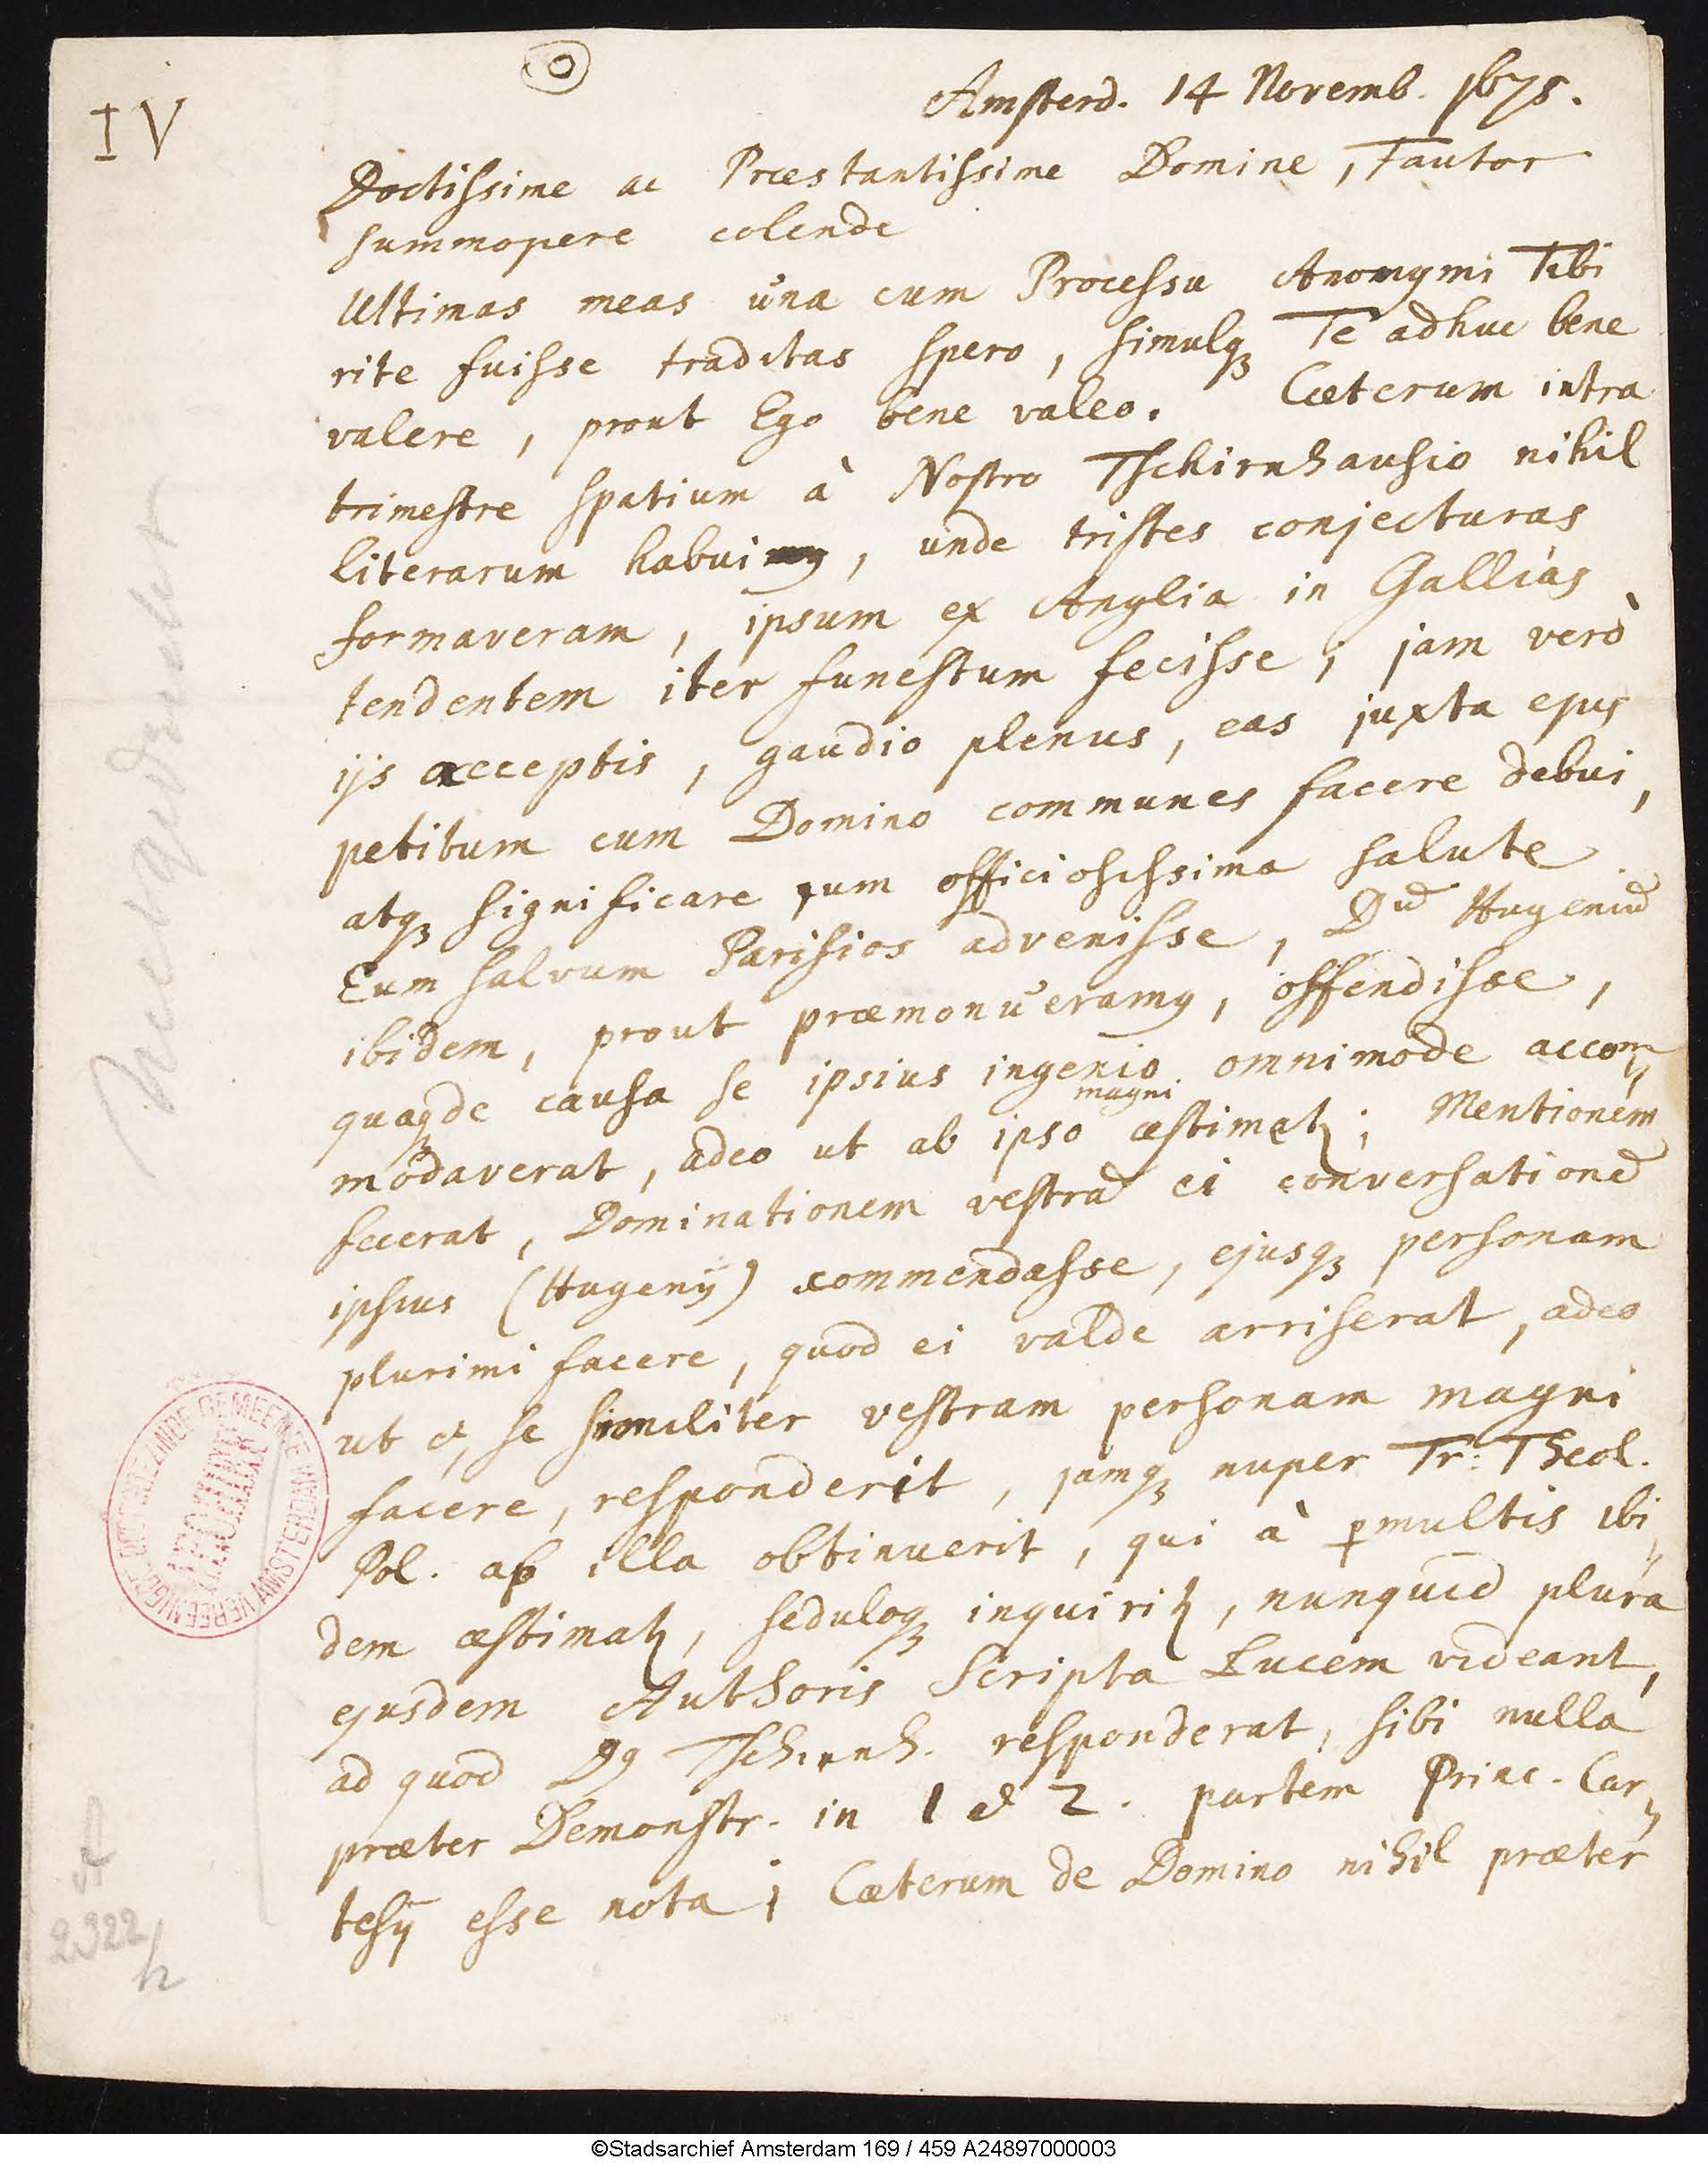 IV
Amsterd. 14 Novemb. 1675.
Doctissime ac Præstantissime Domine, Fautor
summopere colende
Ultimas meas una cum Processu Anonymi Tibi
rite fuisse traditas spero, simulq₃ Te adhuc bene
valere, prout Ego bene valeo. Cæterum intra
trimestre spatium à Nostro Tschirnhausio nihil
literarum habui, unde tristes conjecturas
formaveram, ipsum ex Anglia in Gallias
tendentem iter funestum fecisse; jam verò
ijs acceptis, gaudio plenus, eas juxta ejus
petitum cum Domino communes facere debui,
atq₃ significare cum officiosissima salute
Eum salvum Parisios advenisse, Dū Hugeniū
ibidem, prout præmonŭeramꝰ, offendisse,
quaq₃de causa se ipsius ingenio omnimode accom„
magni
modaverat, adeo ut ab ipso æstimetʳ; Mentionem
fecerat, Dominationem vestrā ei conversationē
ipsius (Hugenij) commendasse, ejusq₃ personam
plurimi facere, quod ei valde arriserat, adeo
ut &, se similiter vestram personam magni
facere, responderit, jamq₃ nuper Tr. Theol.
Pol. ab illa obtinuerit, qui à ꝑmultis ibi„
dem æstimatʳ, seduloq₃ inquiritʳ, nunquid plura
ejusdem Authoris Scripta Lucem videant,
ad quod Dꝰ Tschirnh. responderat, sibi nulla
præter Demonstr. in 1 & 2. partem Princ. Car„
tesij esse nota; Cæterum de Domino nihil præter
A
2322
h
VEREENIGDE DOOPSGEZINDE GEMEENTE AMSTERDAM
©Stadsarchief Amsterdam 169 / 459 A24897000003